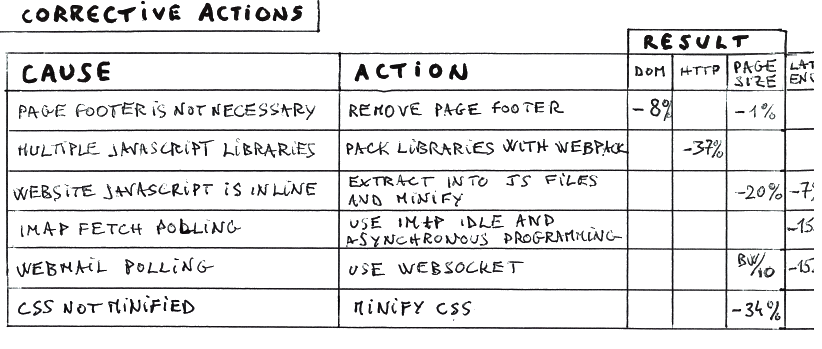 CORRECTIVE ACTIONS
RESULT
CAUSE ACTION DOM HTTP PAGE SIZE LAT ENC
PAGE FOOTER IS NOT NECESSARY REMOVE PAGE FOOTER -8% -1%
MULTIPLE JAVASCRIPT LIBRARIES PACK LIBRARIES WITH WEBPACK -37%
WEBSITE JAVASCRIPT IS INLINE EXTRACT INTO JS FILES AND MINIFY -20% -7%
IMAP FETCH POLLING USE IMAP IDLE AND ASYNCHRONOUS PROGRAMMING -15
WEBMAIL POLLING USE WEBSOCKET BW/10 -15
CSS NOT MINIFIED MINIFY CSS -34%